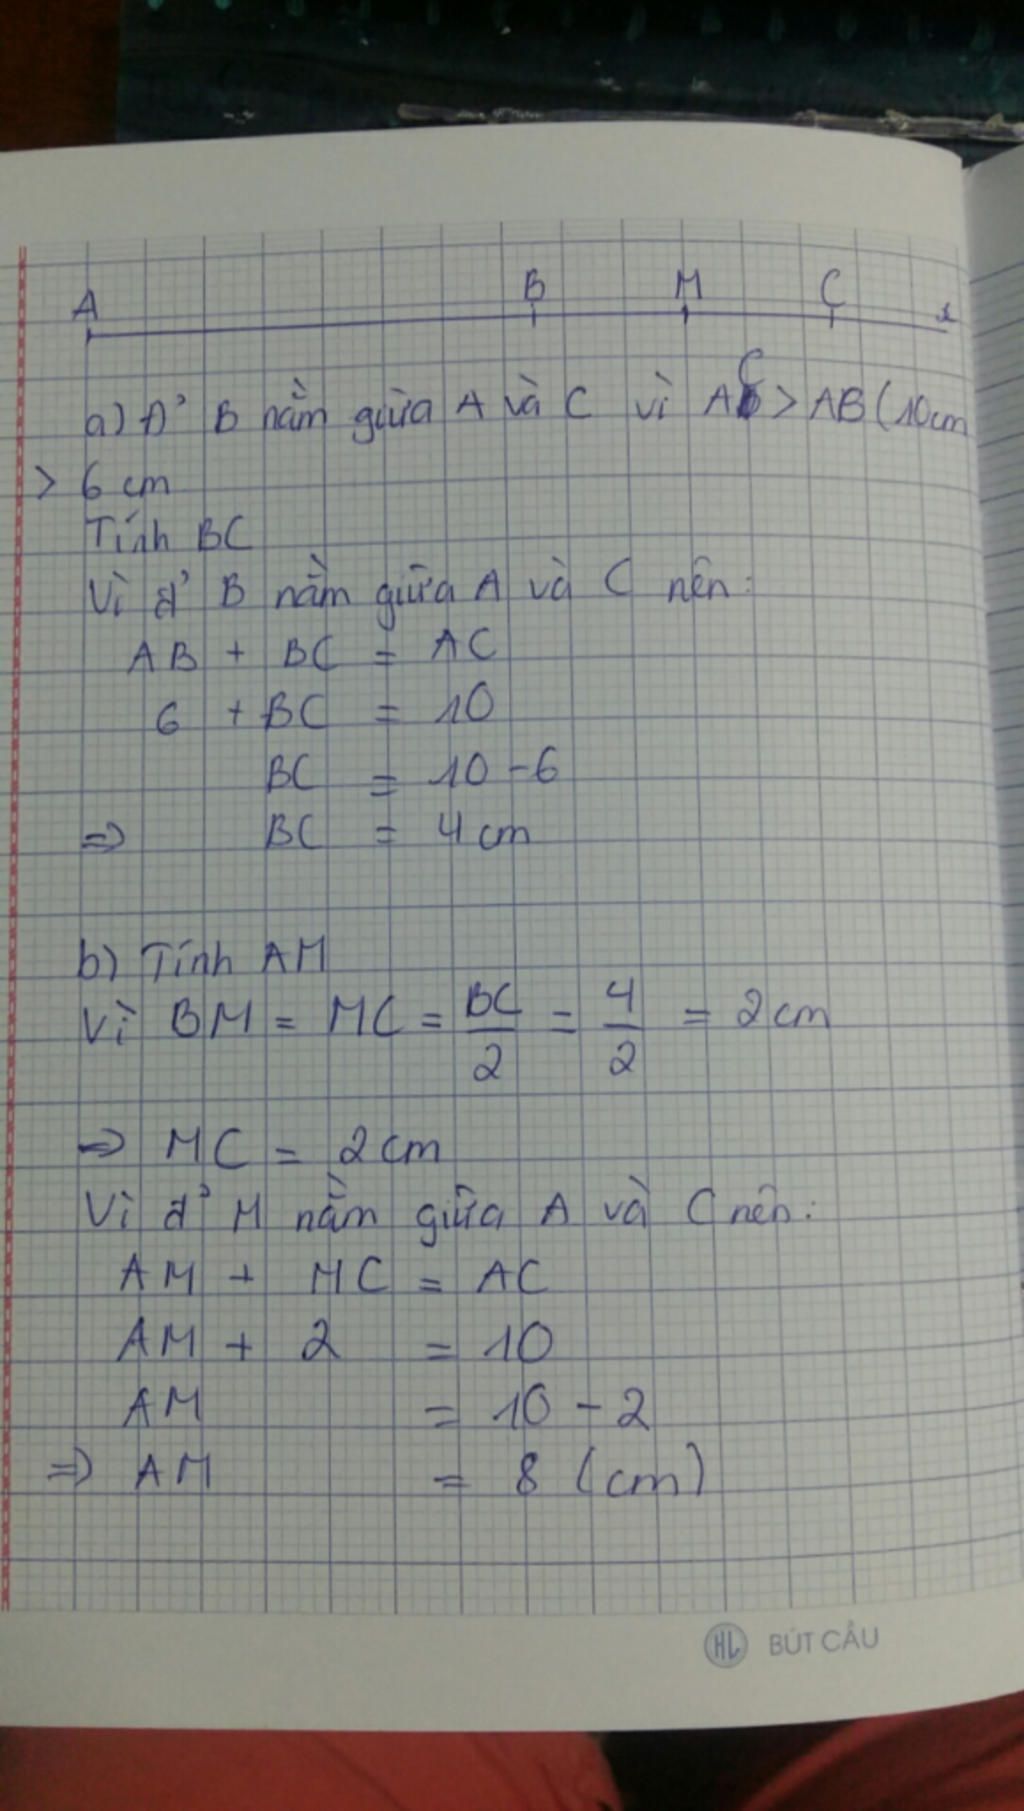 A B M C x
a) Đ' B nằm giữa A và C vì AC > AB (10cm
> 6 cm
Tính BC
Vì đ' B nằm giữa A và C nên:
AB + BC = AC
6 + BC = 10
BC = 10 - 6
=> BC = 4 cm
b) Tính AM
Vì BM = MC = BC/2 = 4/2 = 2 cm
=> MC = 2 cm
Vì đ' M nằm giữa A và C nên:
AM + MC = AC
AM + 2 = 10
AM = 10 - 2
=> AM = 8 (cm)
HL BÚT CÂU